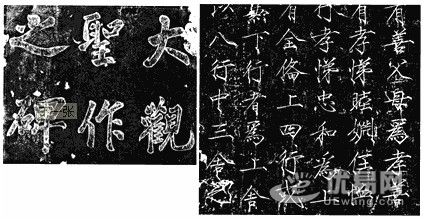 大觀
聖作
之碑
有善父母爲孝善
有孝悌睦婣任恤
行孝悌忠和爲上
有全俻上四行或
無下行者爲上舍
以八行中三舍之
优易网